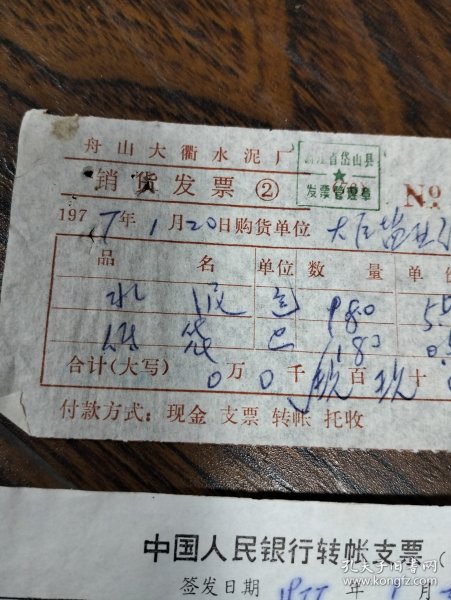 舟山大衢水泥厂
浙江省岱山县
发票管理章
销货发票②
No
1977年1月20日购货单位
品名 单位 数量 单价
水泥 包 180
纸袋 180
合计(大写) 0万0千玖百玖十
付款方式：现金 支票 转帐 托收
中国人民银行转帐支票（
签发日期 1977年1月
孔夫子旧书网